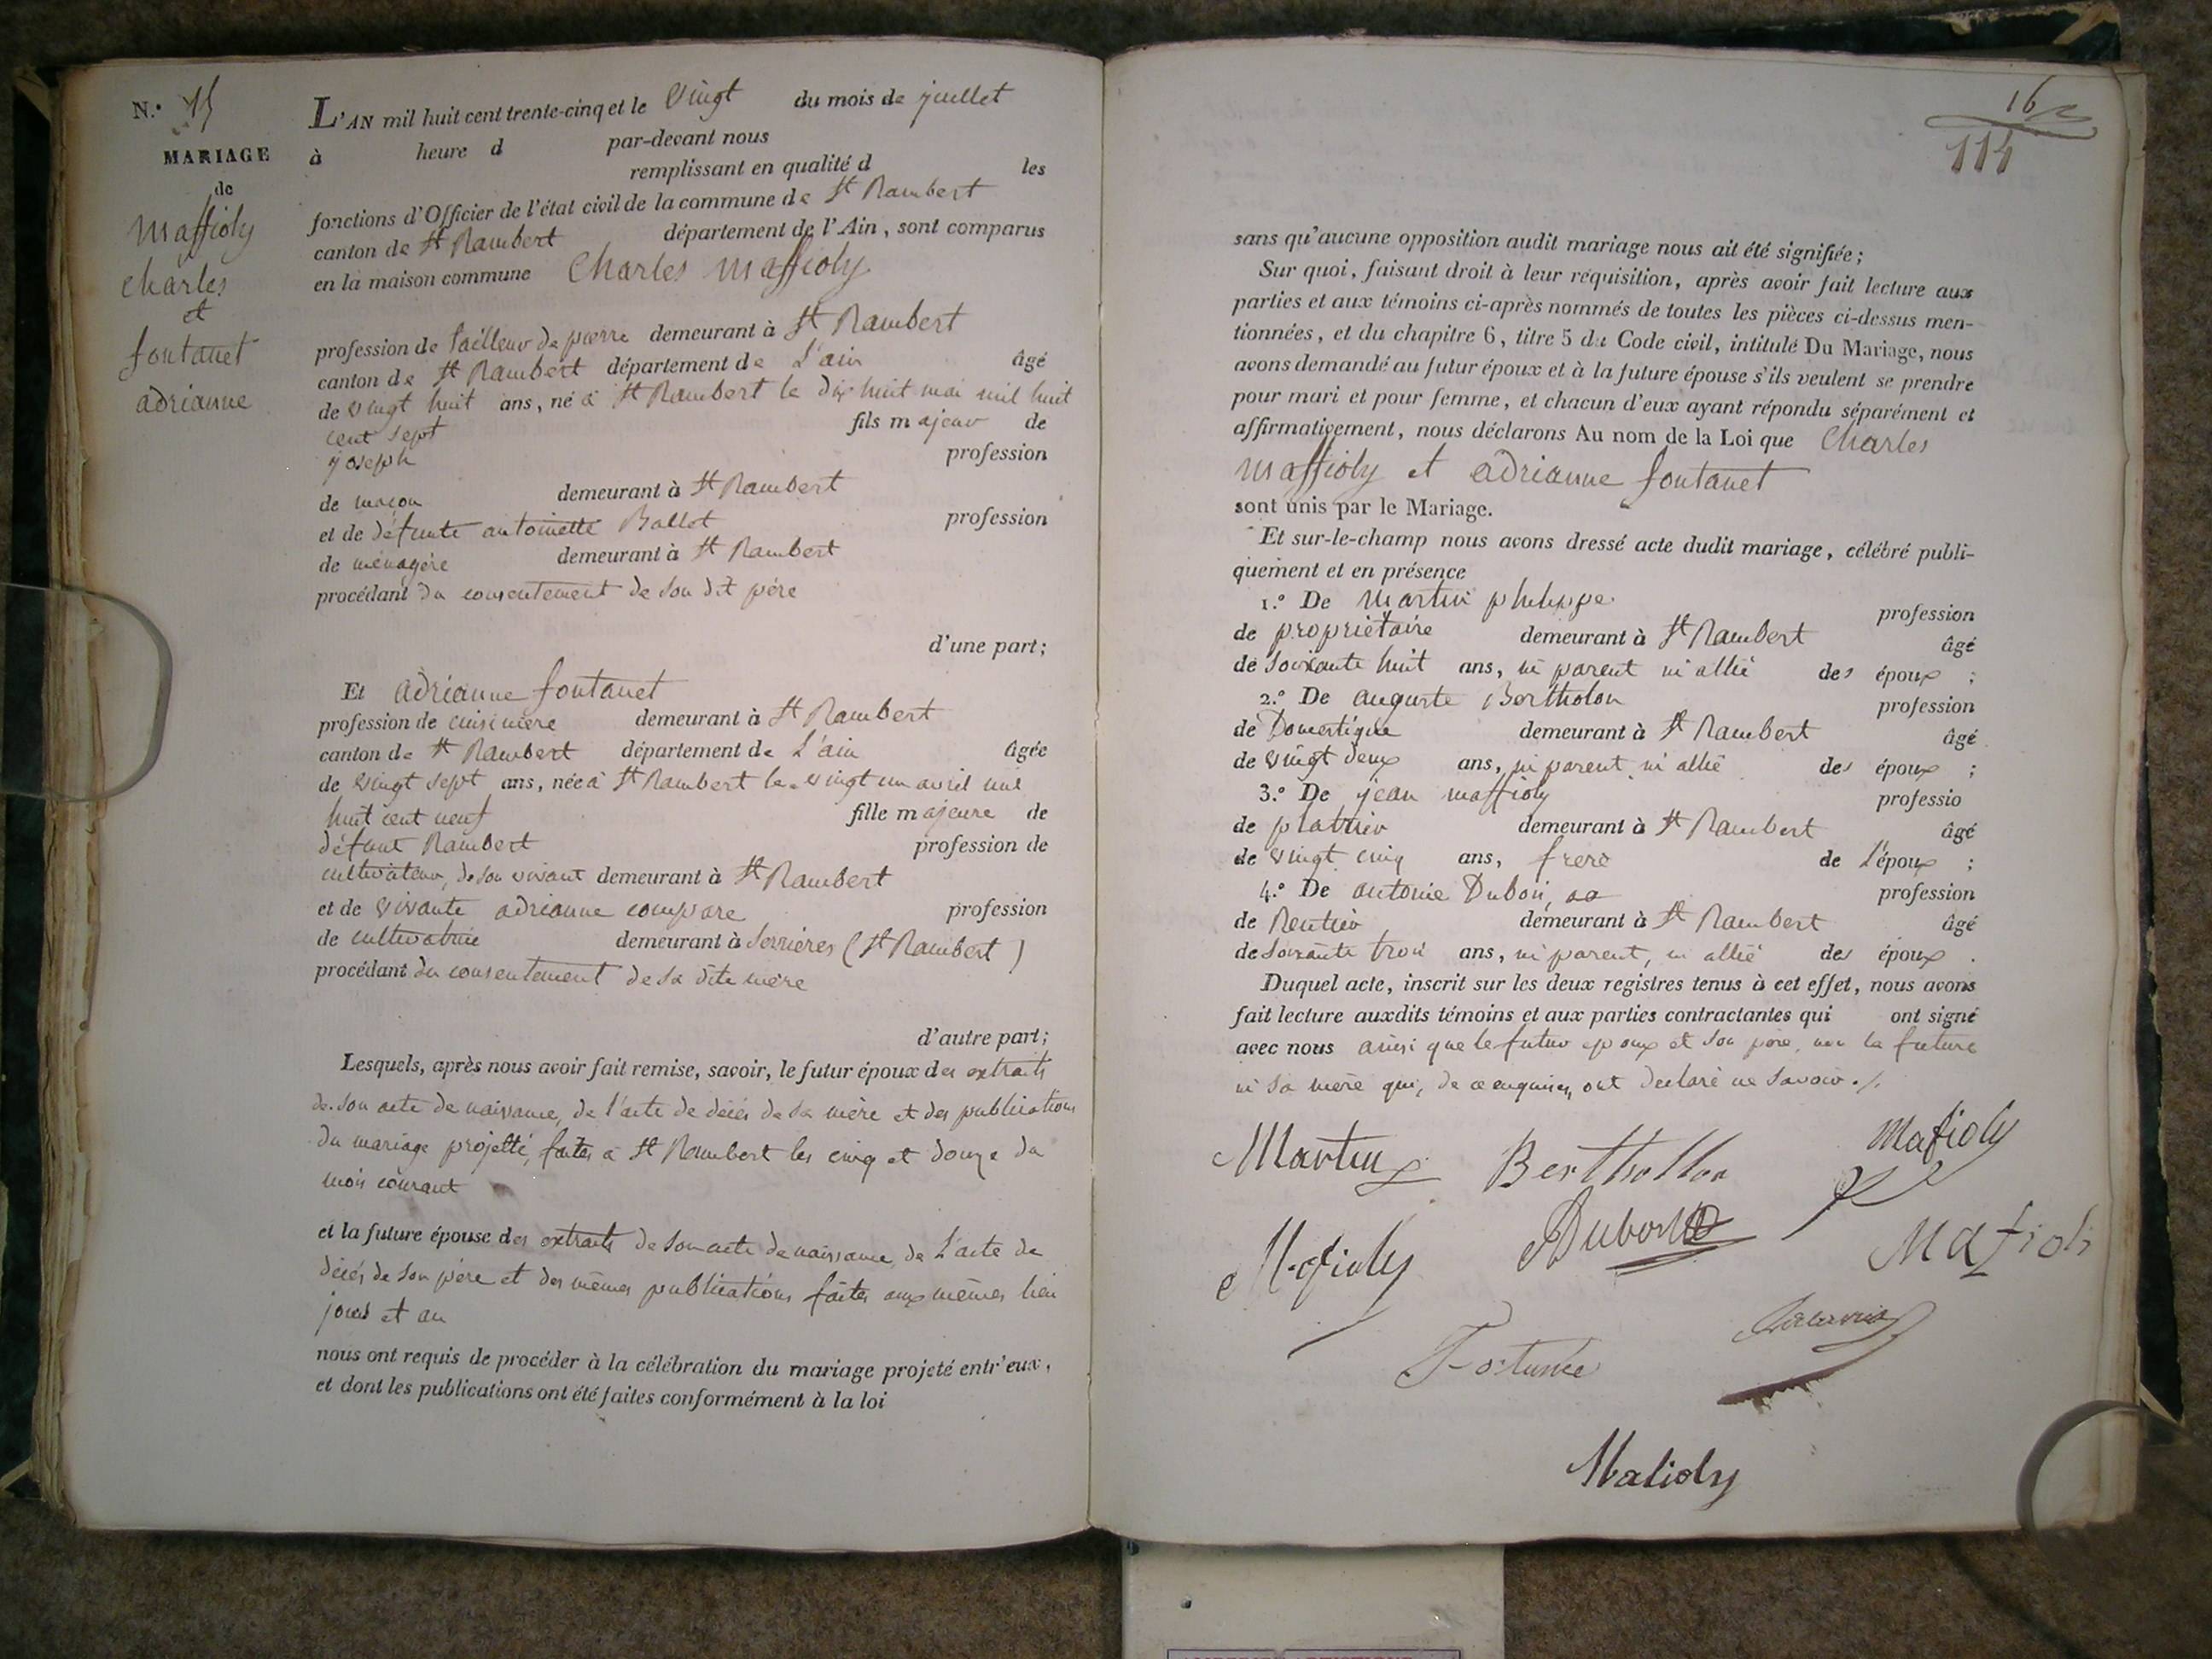 N.º 15
MARIAGE
de
Maffioly
Charles
et
fontanet
adrianne
L'AN mil huit cent trente-cinq et le Vingt du mois de juillet
à heure d par-devant nous
remplissant en qualité d les
fonctions d'Officier de l'état civil de la commune de St Rambert
canton de St Rambert département de l'Ain, sont comparus
en la maison commune Charles Maffioly
profession de tailleur de pierre demeurant à St Rambert
canton de St Rambert département de L'ain âgé
de vingt huit ans, né à St Rambert le dix huit mai mil huit
cent sept fils majeur de
joseph profession
de maçon demeurant à St Rambert
et de défunte antoinette Ballet profession
de ménagère demeurant à St Rambert
procédant du consentement de son dit père
d'une part;
Et adrianne fontanet
profession de cuisiniere demeurant à St Rambert
canton de St Rambert département de L'ain âgée
de vingt sept ans, née à St Rambert le vingt un avril mil
huit cent neuf fille majeure de
défunt Rambert profession de
cultivateur, de son vivant demeurant à St Rambert
et de vivante adrianne compare profession
de cultivatrice demeurant à Serrières (St Rambert)
procédant du consentement de sa dite mère
d'autre part;
Lesquels, après nous avoir fait remise, savoir, le futur époux des extraits
de son acte de naissance, de l'acte de décès de sa mère et des publications
du mariage projetté, faites à St Rambert les cinq et douze du
mois courant
et la future épouse des extraits de son acte de naissance, de L'acte de
décès de son père et des mêmes publications faites aux mêmes lieu
jours et an
nous ont requis de procéder à la célébration du mariage projeté entr'eux,
et dont les publications ont été faites conformément à la loi
16
114
sans qu'aucune opposition audit mariage nous ait été signifiée;
Sur quoi, faisant droit à leur réquisition, après avoir fait lecture aux
parties et aux témoins ci-après nommés de toutes les pièces ci-dessus men-
tionnées, et du chapitre 6, titre 5 du Code civil, intitulé Du Mariage, nous
avons demandé au futur époux et à la future épouse s'ils veulent se prendre
pour mari et pour femme, et chacun d'eux ayant répondu séparément et
affirmativement, nous déclarons Au nom de la Loi que Charles
Maffioly et adrianne fontanet
sont unis par le Mariage.
Et sur-le-champ nous avons dressé acte dudit mariage, célébré publi-
quement et en présence
1.º De Martin philippe profession
de propriétaire demeurant à St Rambert âgé
de soixante huit ans, ni parent ni allié des époux ;
2.º De auguste Bertholon profession
de Domestique demeurant à St Rambert âgé
de vingt deux ans, ni parent ni allié des époux ;
3.º De jean maffioly professio
de platrier demeurant à St Rambert âgé
de vingt cinq ans, frere de L'époux ;
4.º De antoine Dubois profession
de Rentier demeurant à St Rambert âgé
de soixante trois ans, ni parent, ni allié des époux .
Duquel acte, inscrit sur les deux registres tenus à cet effet, nous avons
fait lecture auxdits témoins et aux parties contractantes qui ont signé
avec nous ainsi que le futur epoux et son père, non la future
ni sa mere qui, de ce enquises, ont declaré ne savoir ./.
Martin Berthollon Mafioly
Mafioly Dubois Mafioli
Fortunée
Mafioly